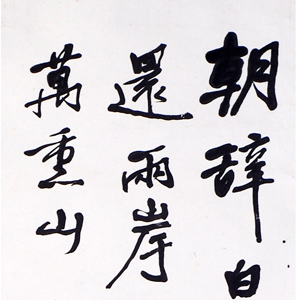 朝辞白
還兩岸
萬重山